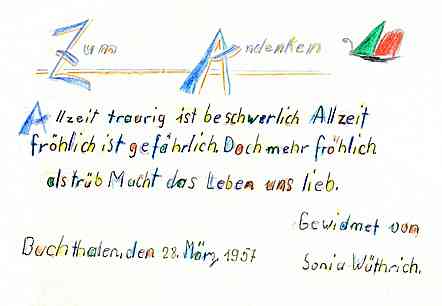 Zum Andenken
Allzeit traurig ist beschwerlich Allzeit
fröhlich ist gefährlich. Doch mehr fröhlich
als trüb Macht das Leben uns lieb.
Gewidmet von
Buchthalen, den 28. März, 1957
Sonia Wüthrich.